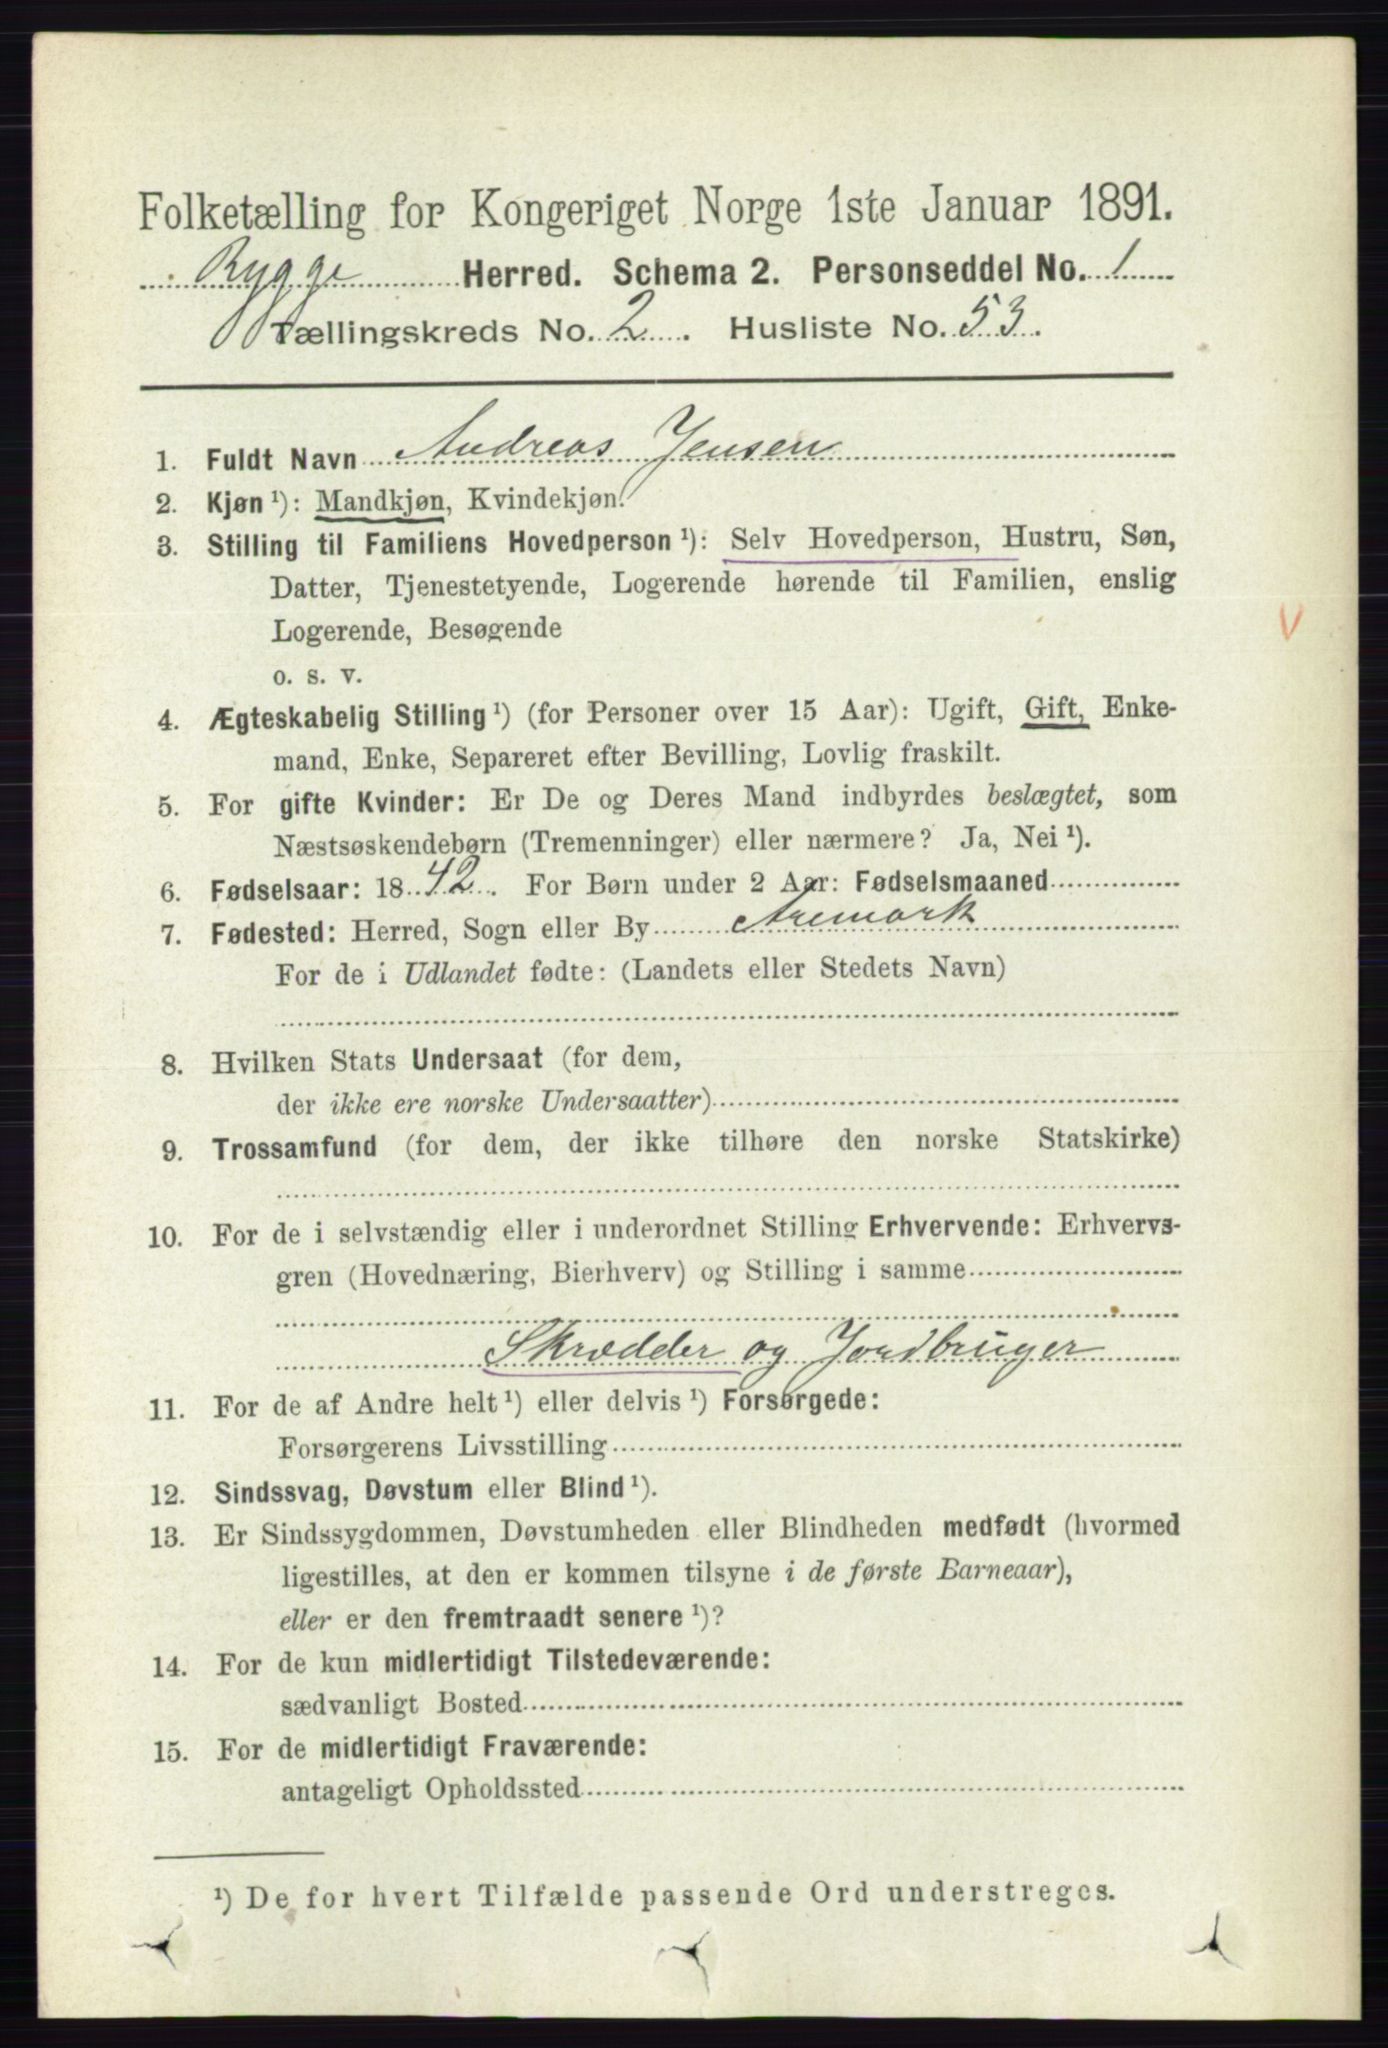 Folketælling for Kongeriget Norge 1ste Januar 1891.
Rygge Herred. Schema 2. Personseddel No. 1
Tællingskreds No. 2. Husliste No. 53.
1. Fuldt Navn Andreas Jensen
2. Kjøn ¹): Mandkjøn, Kvindekjøn.
3. Stilling til Familiens Hovedperson ¹): Selv Hovedperson, Hustru, Søn,
Datter, Tjenestetyende, Logerende hørende til Familien, enslig
Logerende, Besøgende
o. s. v.
4. Ægteskabelig Stilling ¹) (for Personer over 15 Aar): Ugift, Gift, Enke-
mand, Enke, Separeret efter Bevilling, Lovlig fraskilt.
5. For gifte Kvinder: Er De og Deres Mand indbyrdes beslægtet, som
Næstsøskendebørn (Tremenninger) eller nærmere? Ja, Nei ¹).
6. Fødselsaar: 1842. For Børn under 2 Aar: Fødselsmaaned
7. Fødested: Herred, Sogn eller By Aremark
For de i Udlandet fødte: (Landets eller Stedets Navn)
8. Hvilken Stats Undersaat (for dem,
der ikke ere norske Undersaatter)
9. Trossamfund (for dem, der ikke tilhøre den norske Statskirke)
10. For de i selvstændig eller i underordnet Stilling Erhvervende: Erhvervs-
gren (Hovednæring, Bierhverv) og Stilling i samme
Skrædder og Jordbruger
11. For de af Andre helt ¹) eller delvis ¹) Forsørgede:
Forsørgerens Livsstilling
12. Sindssvag, Døvstum eller Blind ¹).
13. Er Sindssygdommen, Døvstumheden eller Blindheden medfødt (hvormed
ligestilles, at den er kommen tilsyne i de første Barneaar),
eller er den fremtraadt senere ¹)?
14. For de kun midlertidigt Tilstedeværende:
sædvanligt Bosted
15. For de midlertidigt Fraværende:
antageligt Opholdssted
¹) De for hvert Tilfælde passende Ord understreges.